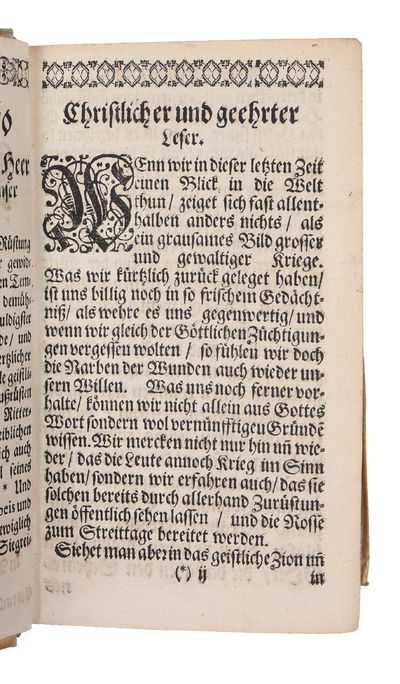 so
Heer
nser
Rüstung
r gewid-
en Tem-
demüh-
uldigster
de / und
ertzlicher
le geistli-
ußrüsten
Ritter-
eiblichen
ch auch
l seines
* Und
eis und
ewiglich
Siegrei-
Christlicher und geehrter
Leser.
WEnn wir in dieser letzten Zeit
einen Blick in die Welt
thun / zeiget sich fast allent-
halben anders nichts / als
ein grausames Bild grosser
und gewaltiger Kriege.
Was wir kürtzlich zurück geleget haben /
ist uns billig noch in so frischem Gedächt-
niß / als wehre es uns gegenwertig / und
wenn wir gleich der Göttlichen Züchtigun-
gen vergessen wolten / so fühlen wir doch
die Narben der Wunden auch wieder un-
sern Willen. Was uns noch ferner vor-
halte / können wir nicht allein aus Gottes
Wort sondern wol vernünfftigeu Gründē
wissen. Wir mercken nicht nur hin uñ wie-
der / das die Leute annoch Krieg im Sinn
haben / sondern wir erfahren auch / das sie
solchen bereits durch allerhand Zurüstun-
gen öffentlich sehen lassen / und die Rosse
zum Streittage bereitet werden.
Siehet man aber in das geistliche Zion uñ
(*) ij
in